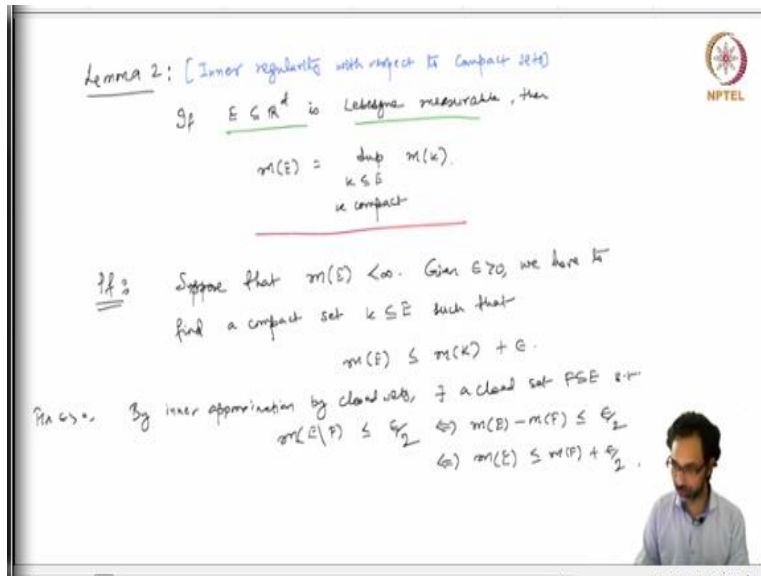 Lemma 2: [Inner regularity with respect to Compact sets]
NPTEL
If E ⊆ R^d is Lebesgue measurable, then
m(E) = sup m(K).
K ⊆ E
K compact
Pf: Suppose that m(E) < ∞. Given ε>0, we have to
find a compact set K ⊆ E such that
m(E) ≤ m(K) + ε.
Fix ε>0. By inner approximation by closed sets, ∃ a closed set F⊆E s.t.
m(E\F) ≤ ε/2 ⇔ m(E) - m(F) ≤ ε/2
⇔ m(E) ≤ m(F) + ε/2.